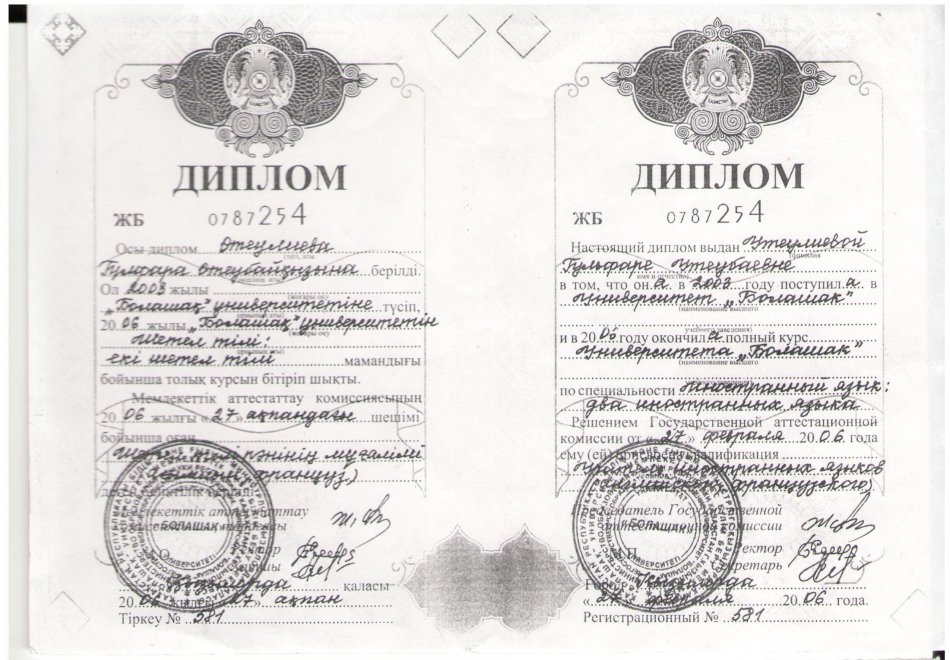 ДИПЛОМ
ЖБ 0787254
Осы диплом Өтеулиева
(тегі, аты)
Гүлфара Өтеубайқызына берілді.
Ол 2003 жылы
(жоғары оқу
„Болашақ" университетіне түсіп,
20.06 жылы „Болашақ" университетін
(жоғары оқу
Шетел тілі:
екі шетел тілі мамандығы
бойынша толық курсын бітіріп шықты.
Мемлекеттік аттестаттау комиссиясының
20.06 жылғы «27» ақпандағы шешімі
бойынша оған
мұғалімі
француз)
қаласы
20.06 жылғы «27» ақпан
Тіркеу № 581
ДИПЛОМ
ЖБ 0787254
Настоящий диплом выдан Утеулиевой
(фамилия
Гульфаре Утеубаевне
имя и отчество)
в том, что он а в 2003 году поступил а в
Университет „Болашак"
(наименование высшего
учебного заведения)
и в 20.06 году окончил а полный курс
Университета „Болашак"
(наименование высшего
по специальности иностранный язык:
два иностранных языка
Решением Государственной аттестационной
комиссии от «27» февраля 20.06. года
ему (ей) присвоена квалификация
Учителя иностранных языков
(английского, французского)
Председатель Государственной
аттестационной комиссии
Ректор
Секретарь
Город Кызылорда
«27» февраля 20.06 года.
Регистрационный № 581
«БОЛАШАК»
УНИВЕРСИТЕТІ
«БОЛАШАК»
УНИВЕРСИТЕТІ